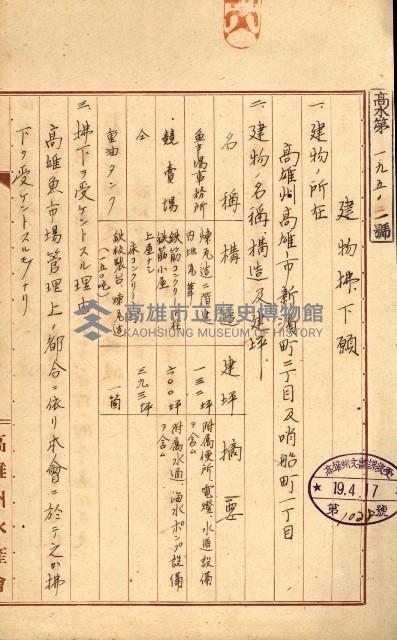 高水第一九五ノ二號
建物拂下願
一、建物ノ所在
高雄州高雄市新濱町二丁目及哨船町一丁目
二、建物ノ名稱構造及建坪
名稱 構造 建坪 摘要
魚市場事務所 煉瓦造二階建 内地瓦葺 一三二坪 附屬便所、電燈、水道設備ヲ含ム
競賣場 鉄筋コンクリート柱 鉄筋小屋 六〇〇坪 附屬水道、海水ポンプ設備ヲ含ム
仝 上屋ナシ 床コンクリート 三九三坪
重油タンク 鉄板製台煉瓦造 (一五〇吨) 一箇
三、拂下ヲ受ケントスル理由
高雄魚市場管理上ノ都合ニ依リ本會ニ於テ之カ拂
下ヲ受ケントスルモノナリ
高雄州水產會
高雄州文書課收受
19.4.17
第1028號
高雄市立歷史博物館
KAOHSIUNG MUSEUM OF HISTORY